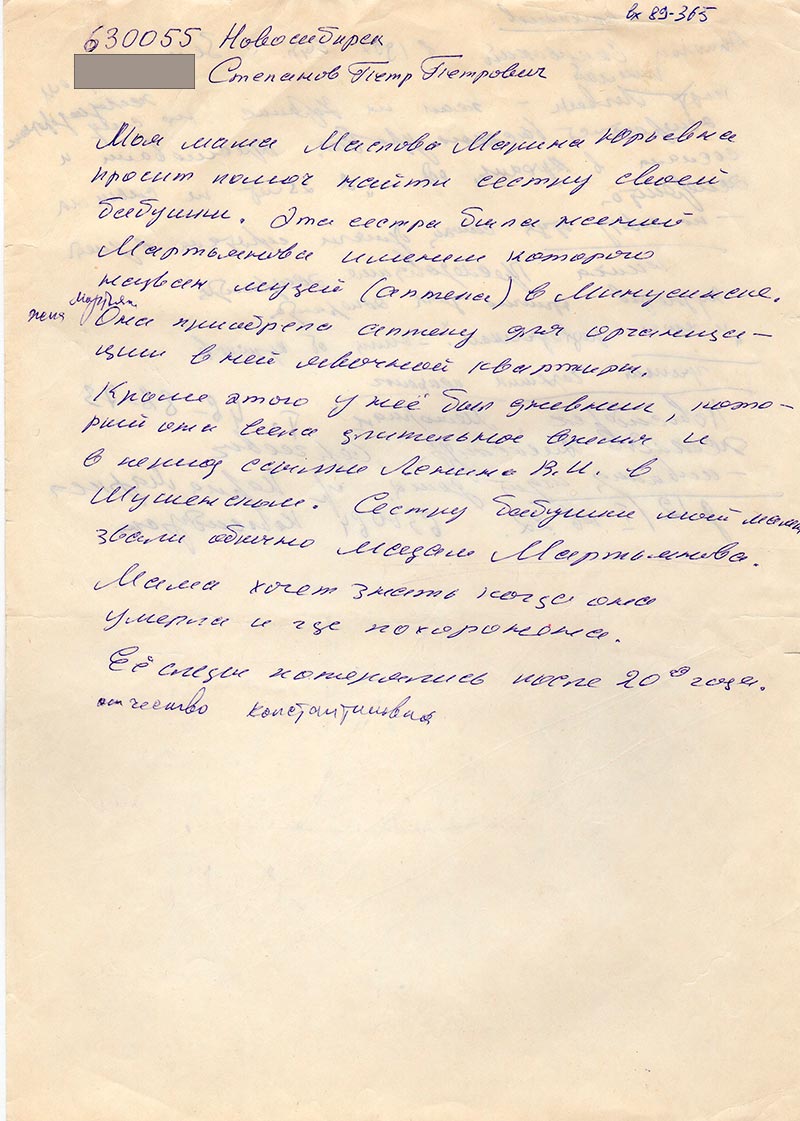 вх 89-365
630055 Новосибирск
Степанов Петр Петрович
Моя мама Маслова Марина Юрьевна
просит помоч найти сестру своей
бабушки. Эта сестра была женой
Мартьянова именем которого
назван музей (аптека) в Минусинске.
жена Мартьян.
Она приобрела аптеку для организа-
ции в ней явочной квартиры.
Кроме этого у неё был дневник, кото-
рый она вела длительное время и
в период ссылки Ленина В.И. в
Шушенском. Сестру бабушки моей мамы
звали обычно мадам Мартьянова.
Мама хочет знать когда она
умерла и где похоронена.
Её следы потерялись после 20го года.
отчество Константиновна